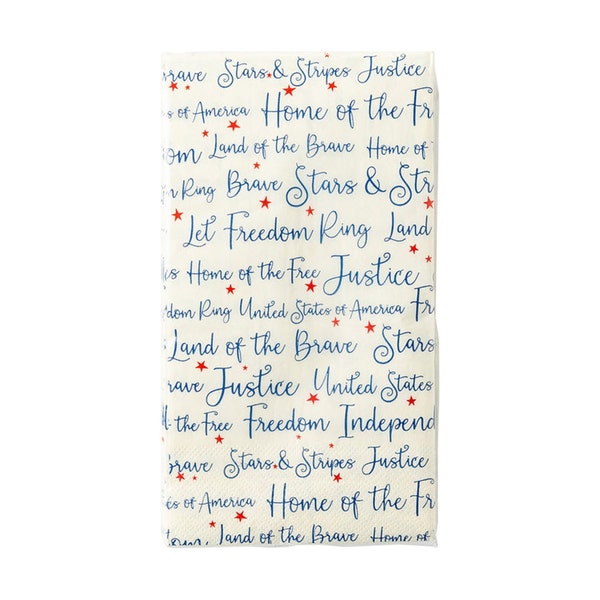 Brave Stars & Stripes Justice
es of America Home of the Fr
om Land of the Brave Home of
m Ring Brave Stars & Str
Let Freedom Ring Land
es Home of the Free Justice
dom Ring United States of America Fr
Land of the Brave Stars
rave Justice United States
the Free Freedom Independ
Brave Stars & Stripes Justice
es of America Home of the Fr
tom Land of the Brave Home of